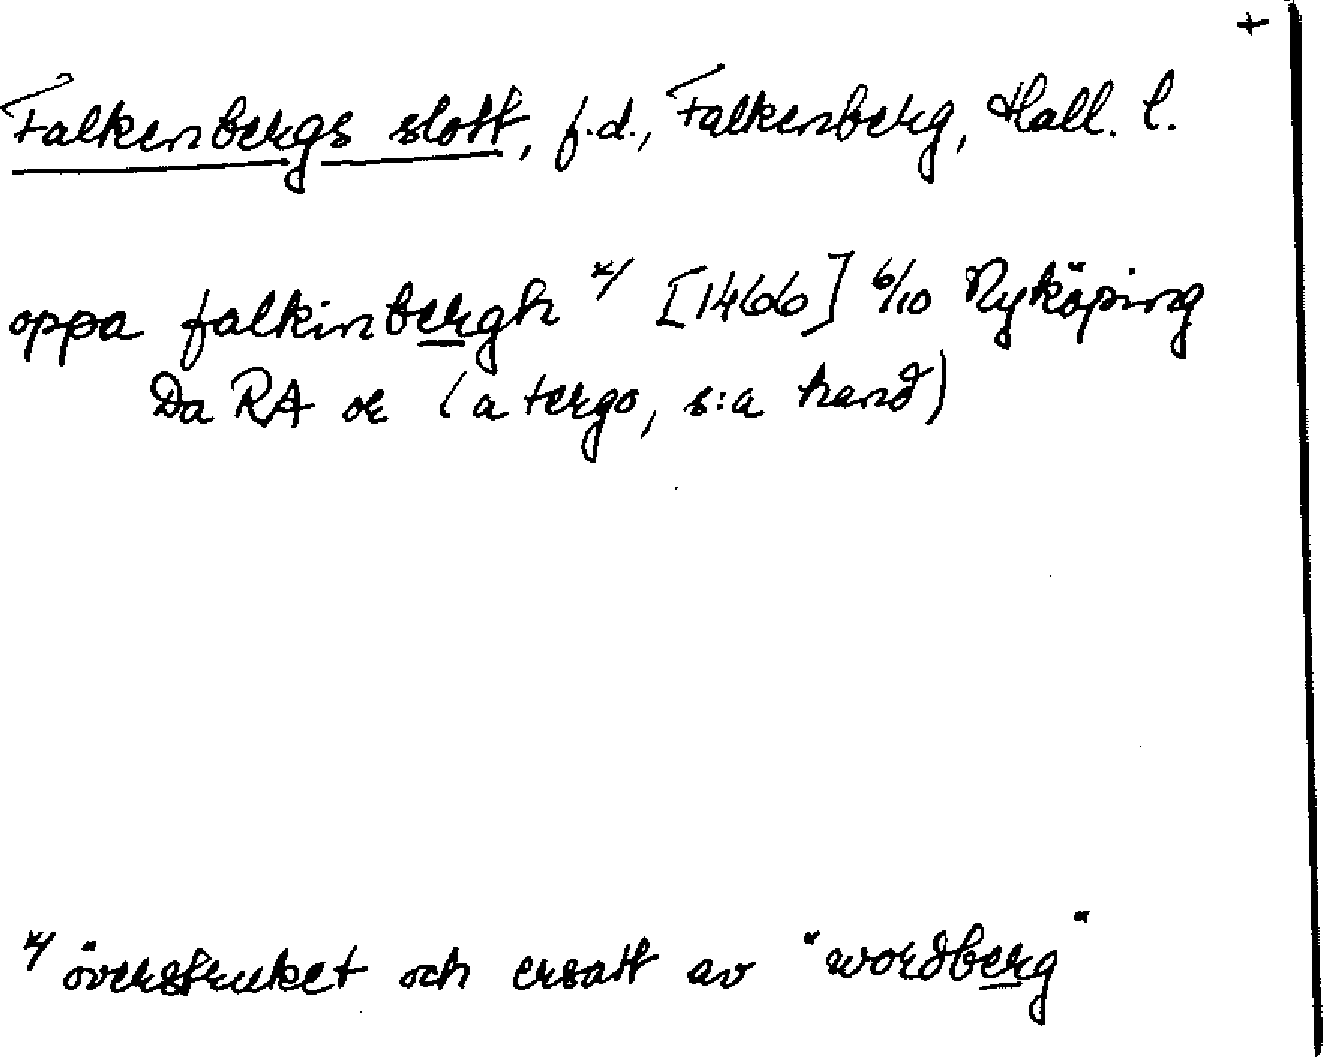 +
Falkenbergs slott, f.d., Falkenberg, Hall. l.
oppa falkinbergh x/ [1466] 6/10 Nyköping
Da RA or (a tergo, s:a hand)
x/ överstruket och ersatt av "wordberg"